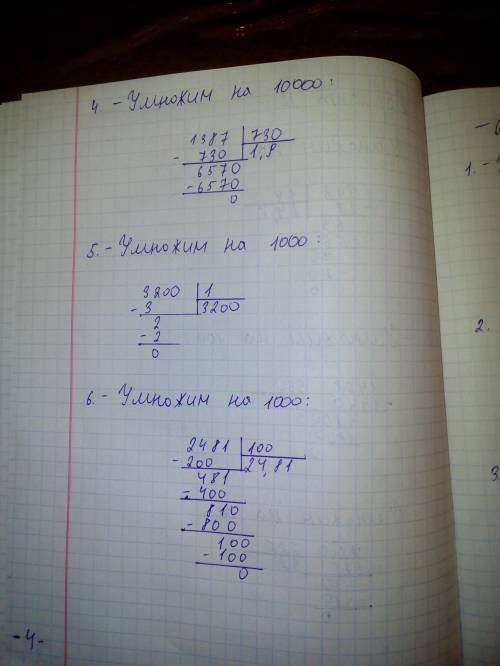 4. - Умножим на 10000:
1387 | 730
- 730 | 1,9
6570
- 6570
0
5. - Умножим на 1000:
3200 | 1
- 3 | 3200
2
- 2
0
6. - Умножим на 1000:
2481 | 100
- 200 | 24,81
481
- 400
810
- 800
100
- 100
0
- 4 -
1. -
2.
3.